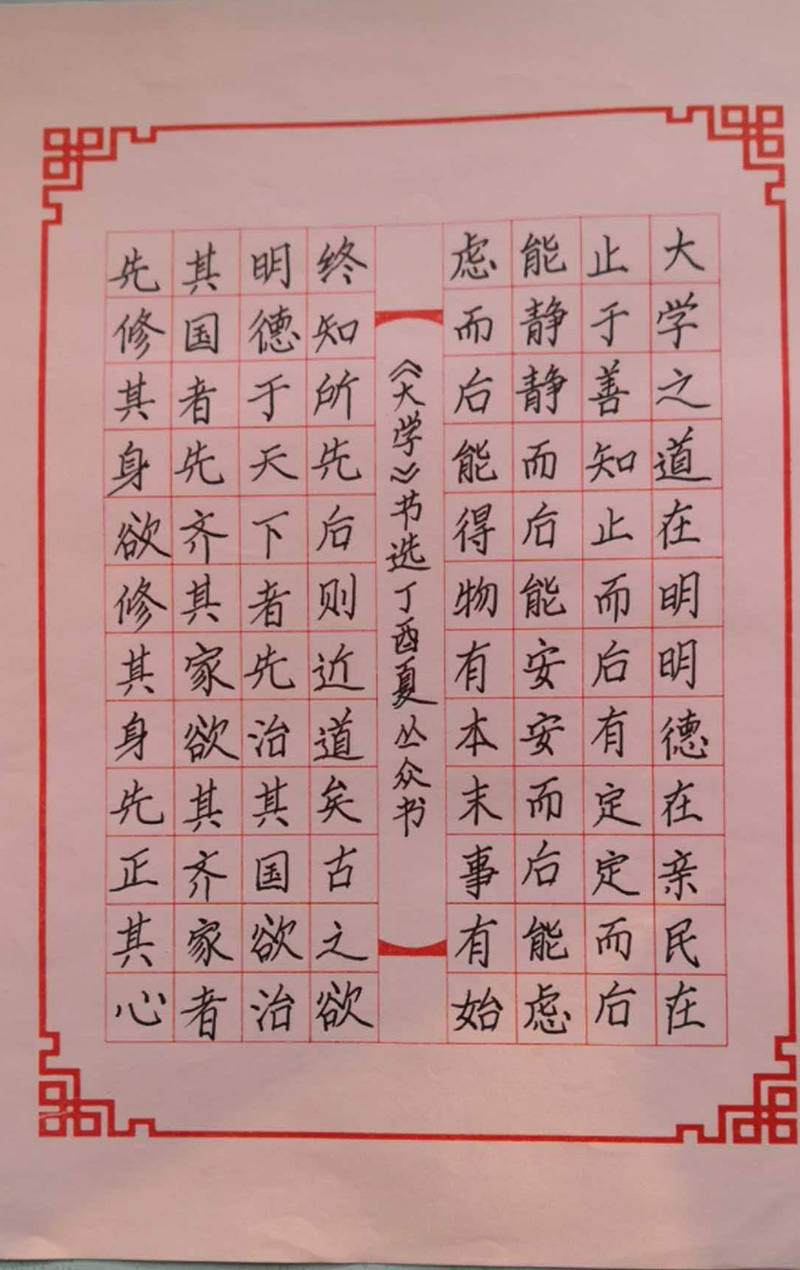 大学之道在明明德在亲民在
止于善知止而后有定定而后
能静静而后能安安而后能虑
虑而后能得物有本末事有始
《大学》书选丁酉夏丛众书
终知所先后则近道矣古之欲
明德于天下者先治其国欲治
其国者先齐其家欲其齐家者
先修其身欲修其身先正其心